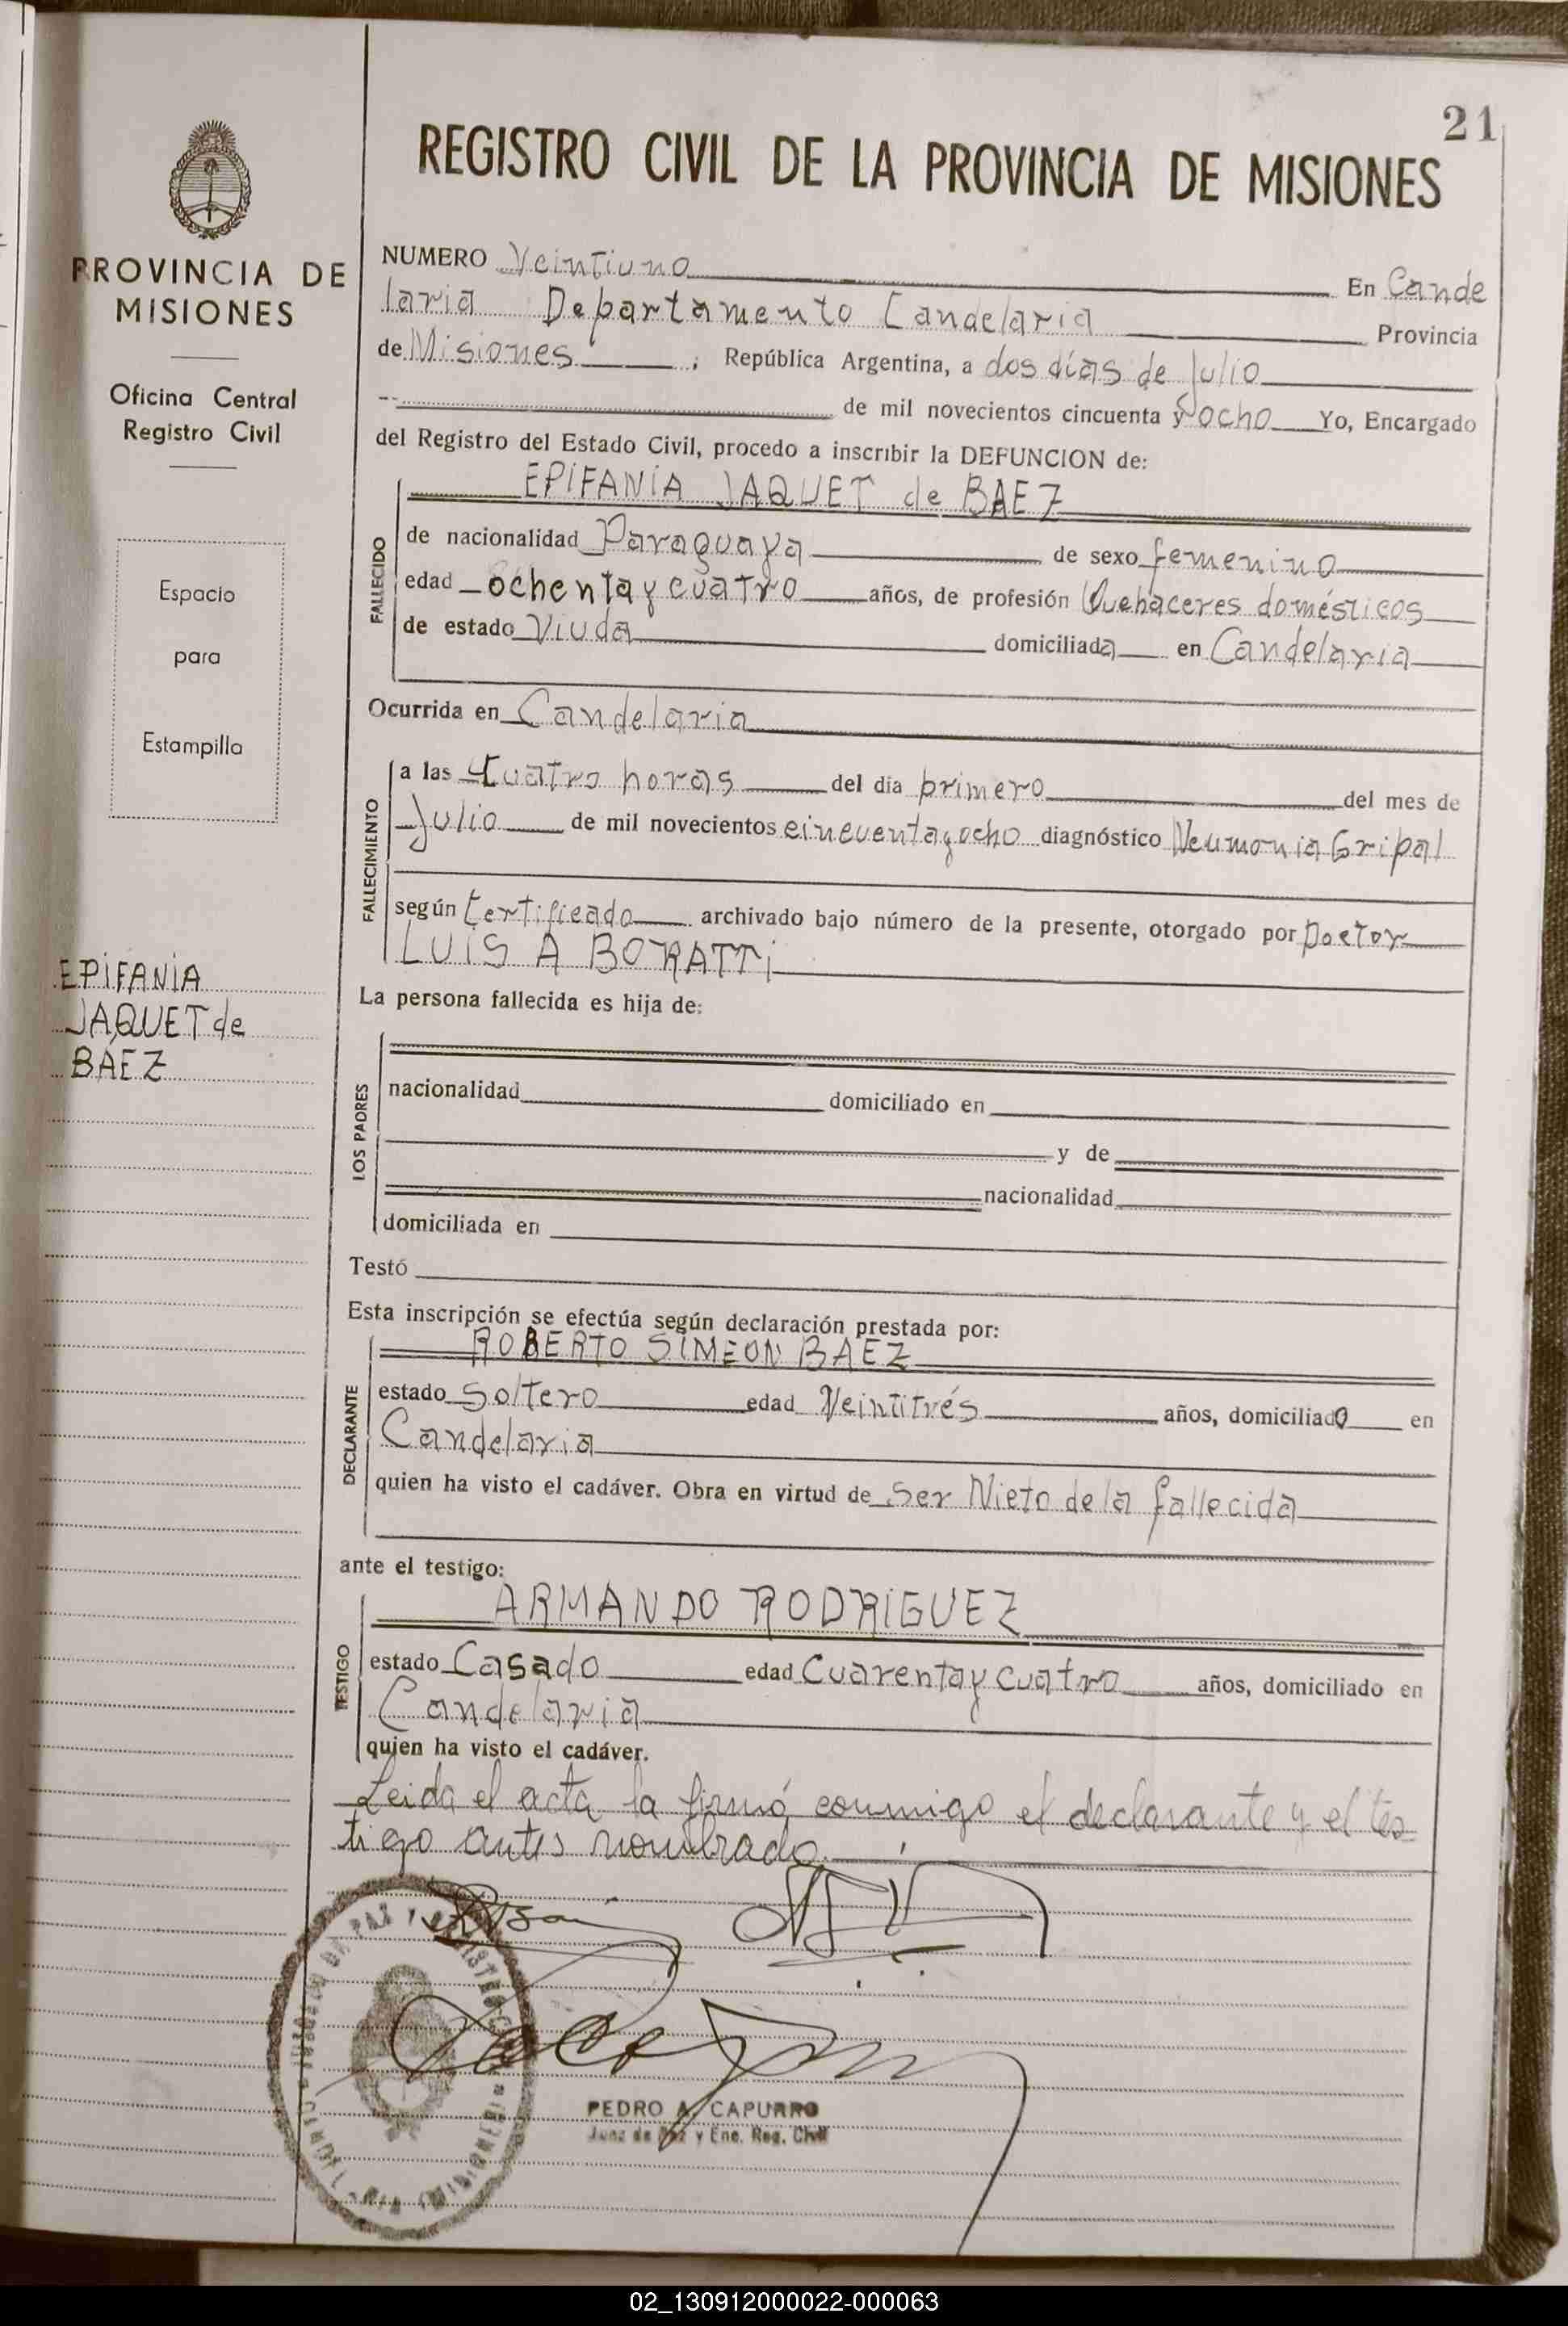 21
REGISTRO CIVIL DE LA PROVINCIA DE MISIONES
PROVINCIA DE
MISIONES
Oficina Central
Registro Civil
Espacio
para
Estampilla
EPIFANIA
JAQUET de
BAEZ
NUMERO Veintiuno En Cande
laria Departamento Candelaria Provincia
de Misiones ; República Argentina, a dos días de Julio
de mil novecientos cincuenta y ocho Yo, Encargado
del Registro del Estado Civil, procedo a inscribir la DEFUNCION de:
EPIFANIA JAQUET de BAEZ
FALLECIDO
de nacionalidad Paraguaya de sexo femenino
edad ochenta y cuatro años, de profesión Quehaceres domésticos
de estado Viuda domiciliada en Candelaria
Ocurrida en Candelaria
FALLECIMIENTO
a las Cuatro horas del día primero del mes de
Julio de mil novecientos cincuenta y ocho diagnóstico Neumonia Gripal
según Certificado archivado bajo número de la presente, otorgado por Doctor
LUIS A BORATTi
La persona fallecida es hija de:
LOS PADRES
nacionalidad domiciliado en
y de
nacionalidad
domiciliada en
Testó
Esta inscripción se efectúa según declaración prestada por:
ROBERTO SIMEON BAEZ
DECLARANTE
estado Soltero edad Veintitrés años, domiciliado en
Candelaria
quien ha visto el cadáver. Obra en virtud de Ser Nieto de la fallecida
ante el testigo:
ARMANDO RODRIGUEZ
TESTIGO
estado Casado edad Cuarenta y cuatro años, domiciliado en
Candelaria
quien ha visto el cadáver.
Leida el acta la firmó conmigo el declarante y el tes-
tigo antes nombrado.
PEDRO A. CAPURRO
Juez de Paz y Enc. Reg. Civil
02_130912000022-000063